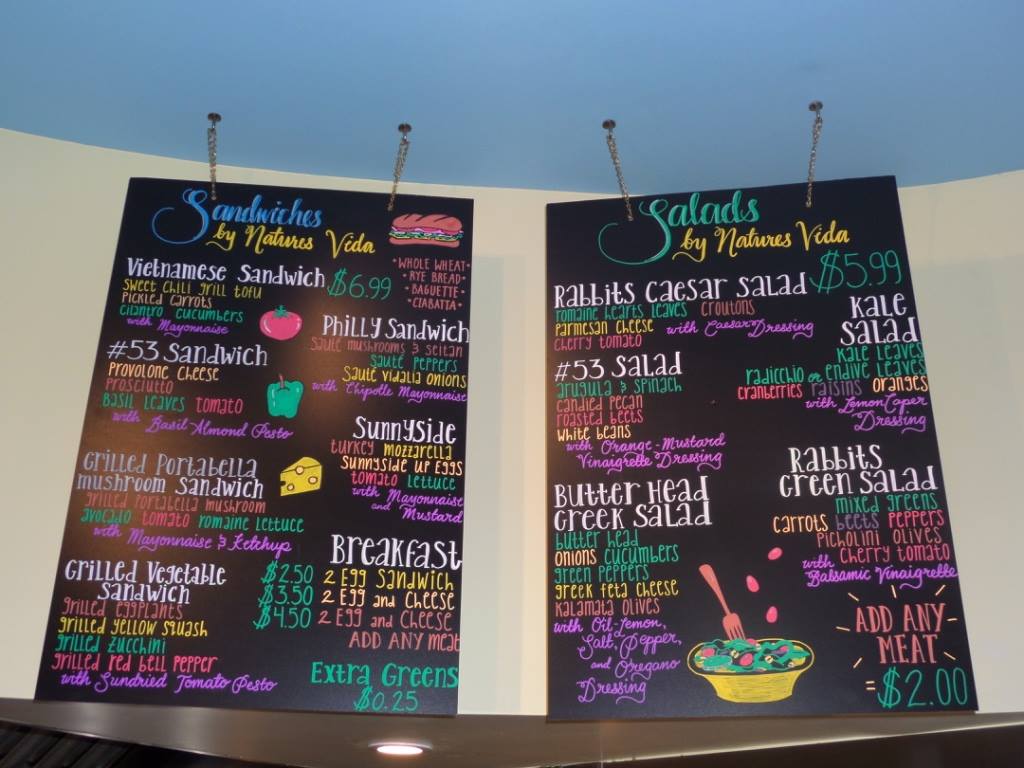 Sandwiches
by Natures Vida
Vietnamese Sandwich $6.99
sweet chili grill tofu
pickled carrots
cilantro cucumbers
with Mayonnaise
#53 Sandwich
provolone cheese
prosciutto
basil leaves tomato
with Basil Almond Pesto
Grilled Portabella
mushroom Sandwich
grilled portabella mushroom
avocado tomato romaine lettuce
with Mayonnaise & Ketchup
Grilled Vegetable
Sandwich
grilled eggplants
grilled yellow squash
grilled zucchini
grilled red bell pepper
with Sundried Tomato Pesto
• Whole Wheat •
• Rye Bread •
• Baguette •
• Ciabatta •
Philly Sandwich
sauté mushrooms & seitan
sauté peppers
sauté vidalia onions
with Chipotle Mayonnaise
Sunnyside
turkey mozzarella
sunnyside up eggs
tomato lettuce
with Mayonnaise
and Mustard
Breakfast
$2.50 2 Egg Sandwich
$3.50 2 Egg and Cheese
$4.50 2 Egg and Cheese
ADD ANY meat
Extra Greens
$0.25
Salads
by Natures Vida
$5.99
Rabbits Caesar Salad
romaine hearts leaves croutons
parmesan cheese with Caesar Dressing
cherry tomato
#53 Salad
arugula & spinach
candied pecan
roasted beets
white beans
with Orange-Mustard
Vinaigrette Dressing
Butter Head
Greek Salad
butter head
onions cucumbers
green peppers
greek feta cheese
kalamata olives
with Oil-Lemon,
Salt, Pepper,
and Oregano
Dressing
Kale
Salad
kale leaves
radicchio or endive leaves
cranberries raisins oranges
with Lemon Caper
Dressing
Rabbits
Green Salad
mixed greens
carrots beets peppers
picholini olives
cherry tomato
with
Balsamic Vinaigrette
ADD ANY
MEAT
= $2.00